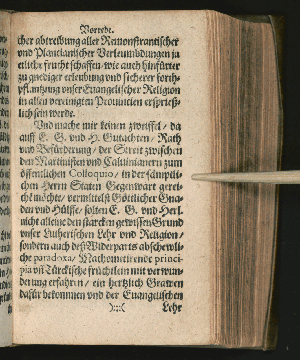 Vorrede.
cher abtreibung aller Remonstrantischer
vnd Plancianischer Verleumbdungen ja
etliche frucht schaffen / wie auch hinfürter
zu gnediger erleubung vnd sicherer forth-
pflantzung vnser Euangelischer Religion
in allen vereinigten Prouintien ersprieß-
lich sein werde.
Vnd mache mir keinen zweiffel / da
auff E. G. vnd H. Gutachten / Rath
vnd Befürderung / der Streit zwischen
den Martinisten vnd Caluinianern zum
öffentlichen Colloquio / in der sämptli-
chen Herrn Staten Gegenwart gerei-
chet möchte / vermittelst Göttlicher Gna-
den vnd Hülffe / solten E. G. vnd Herl.
nicht alleine den starcken gewissen Grund
vnser Lutherischen Lehr vnd Religion /
sondern auch deß Widerparts abschewli-
che paradoxa / Mathometirende princi-
pia vñ Türckische früchtlein mit verwun-
derung erfahren / ein hertzlich Grawen
dafür bekommen vnd der Euangelischen
):::( Lehr